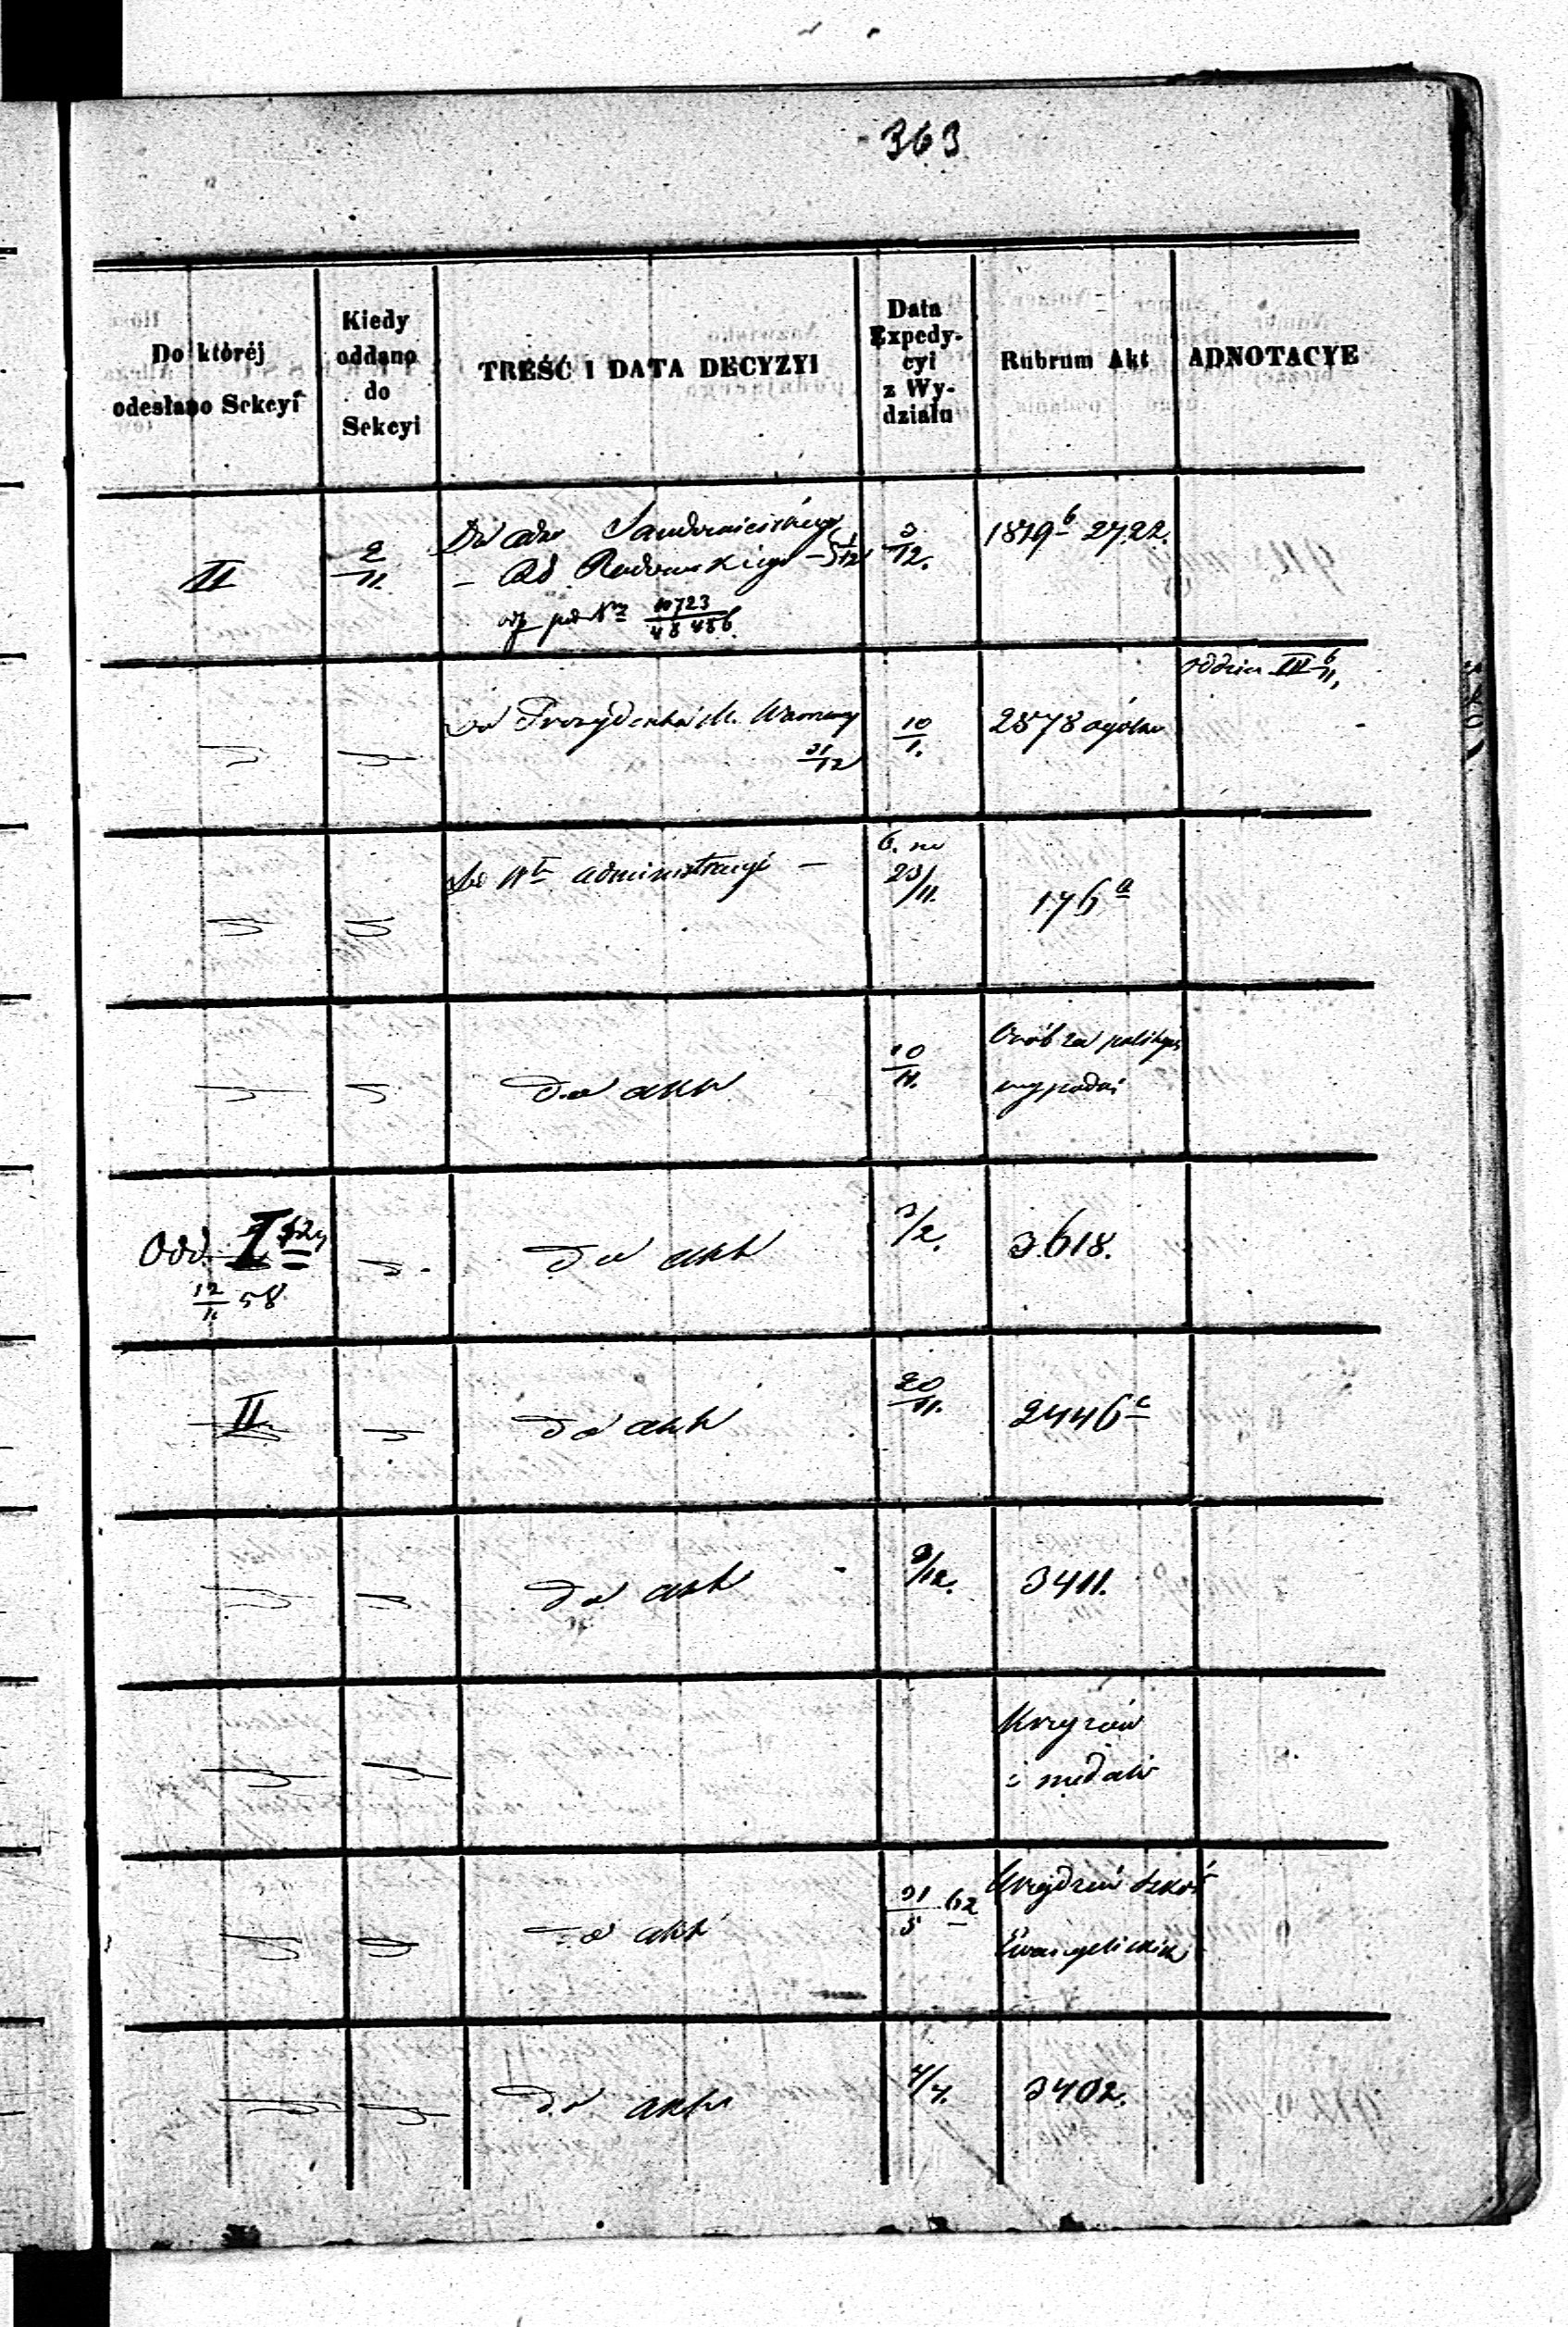 363
Do któréj
odesłano Sekcyi
Kiedy
oddano
do
Sekcyi
TREŚĆ I DATA DECYZYI
Data
Expedy-
cyi
z Wy-
działu
Rubrum Akt
ADNOTACYE
II
2/11.
Sandomierskiego
Radomskiego
10723/48486.
3/12.
1879 b 2722.
Prezydenta M. Warszawy
31/12
10/1.
2878 ogólne
oddział III 6/11
administracyi —
23/11.
176 a
do akt
10/11.
Osób za
Odd. I
12/11 58
do akt
3/2.
3618.
II
do akt
20/11.
2446 c
do akt
9/12.
3411.
Krzyżów
i medali
do akt
31/5 62
Urządzeń szkół
Ewangelickich
do akt
4/4.
3402.